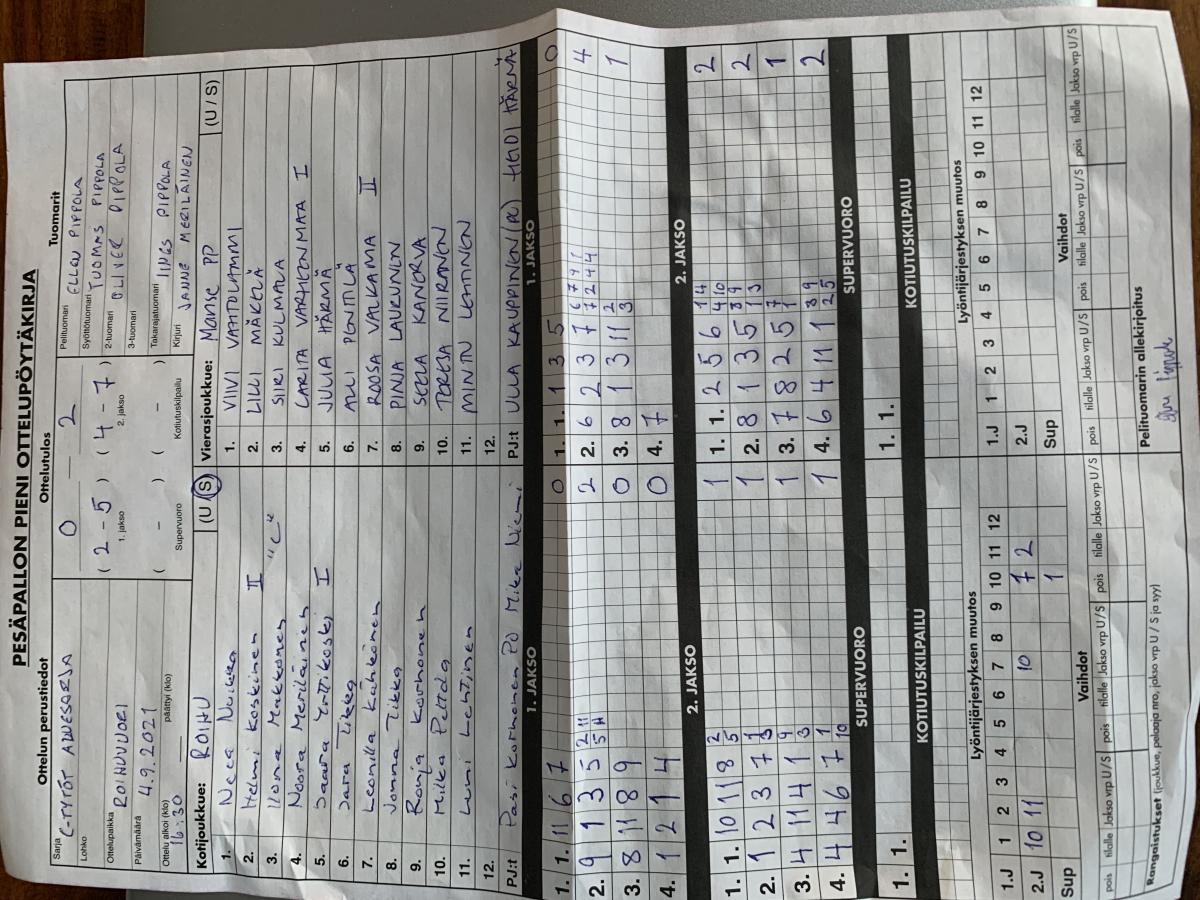 PESÄPALLON PIENI OTTELUPÖYTÄKIRJA
Ottelun perustiedot
Sarja C-TYTÖT ALUESARJA
Lohko
Ottelupaikka ROIHUVUORI
Päivämäärä 4.9.2021
Ottelu alkoi (klo) 16:30 päättyi (klo)
Ottelutulos
0 — 2
( 2 - 5 ) ( 4 - 7 )
1. jakso 2. jakso
( - ) ( - )
Supervuoro Kotiutuskilpailu
Tuomarit
Pelituomari ELLEN PIPPOLA
Syöttötuomari TUOMAS PIPPOLA
2-tuomari OLIVER PIPPOLA
3-tuomari
Takarajatuomari IINES PIPPOLA
Kirjuri JANNE MERILÄINEN
Kotijoukkue: ROIHU (U / S)
1. Neea
2. Helmi Koskinen II
3. Ilona Makkonen "C"
4. Noora Meriläinen
5. Saara Yrttikoski I
6. Sara Tikka
7. Leonilla Kähkönen
8. Jonna Tikka
9. Ronja Korhonen
10. Milka Peltola
11. Lumi Lehtinen
12.
PJ:t Pasi Korhonen PJ Mika Niemi
Vierasjoukkue: Manse PP (U / S)
1. VIIVI VAHTOLAMMI
2. LILLI MÄKELÄ
3. SIRI KULMALA
4. CARITA VARHEENMAA I
5. JULIA HÄRMÄ
6. ALLI PENTTILÄ
7. ROOSA VALKAMA II
8. PINJA LAURUNEN
9. SEELA KANERVA
10. TERESA NIIRANEN
11. MINTTU LEHTINEN
12.
PJ:t ULLA KAUPPINEN (PJ) HEIDI HÄRMÄ
1. JAKSO
1. 1. 11 6 7 0
2. 9 1 3 5 2 5 11 11 2
3. 8 11 8 9 0
4. 1 2 1 4 0
1. JAKSO
1. 1. 1 3 5 0
2. 6 2 3 7 4
3. 8 1 3 11 2 3 1
4. 7
2. JAKSO
1. 1. 10 11 8 2 5 1
2. 1 2 3 7 1
3. 4 11 4 1 9 3 1
4. 4 4 6 7 1 10 1
2. JAKSO
1. 1. 2 5 6 1 4 4 10 2
2. 8 1 3 5 8 9 1 3 2
3. 7 8 2 5 7 1 1
4. 6 4 11 1 8 9 2 5 2
SUPERVUORO
1. 1.
SUPERVUORO
1. 1.
KOTIUTUSKILPAILU
KOTIUTUSKILPAILU
Lyöntijärjestyksen muutos
1 2 3 4 5 6 7 8 9 10 11 12
1.J
2.J 10 11 10 7 2
Sup 1
Lyöntijärjestyksen muutos
1 2 3 4 5 6 7 8 9 10 11 12
1.J
2.J
Sup
Vaihdot
pois tilalle Jakso vrp U/S pois tilalle Jakso vrp U/S pois tilalle Jakso vrp U/S
Vaihdot
pois tilalle Jakso vrp U/S pois tilalle Jakso vrp U/S pois tilalle Jakso vrp U/S
Rangaistukset (joukkue, pelaaja nro, jakso vrp U / S ja syy)
Pelituomarin allekirjoitus